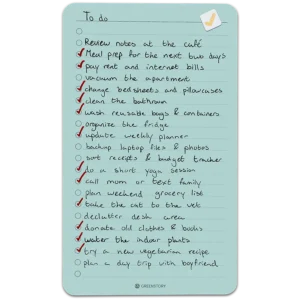 To do
Review notes at the café
Meal prep for the next two days
pay rent and internet bills
vacuum the apartment
change bedsheets and pillowcases
clean the bathroom
wash reusable bags & containers
organize the fridge
update weekly planner
backup laptop files & photos
sort receipts & budget tracker
do a short yoga session
call mom or text family
plan weekend grocery list
take the cat to the vet
declutter desk area
donate old clothes & books
water the indoor plants
try a new vegetarian recipe
plan a day trip with boyfriend
GREENSTORY